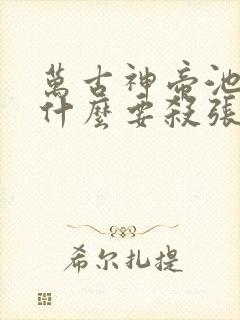 萬古神帝池
什麼要殺張
希尔扎提